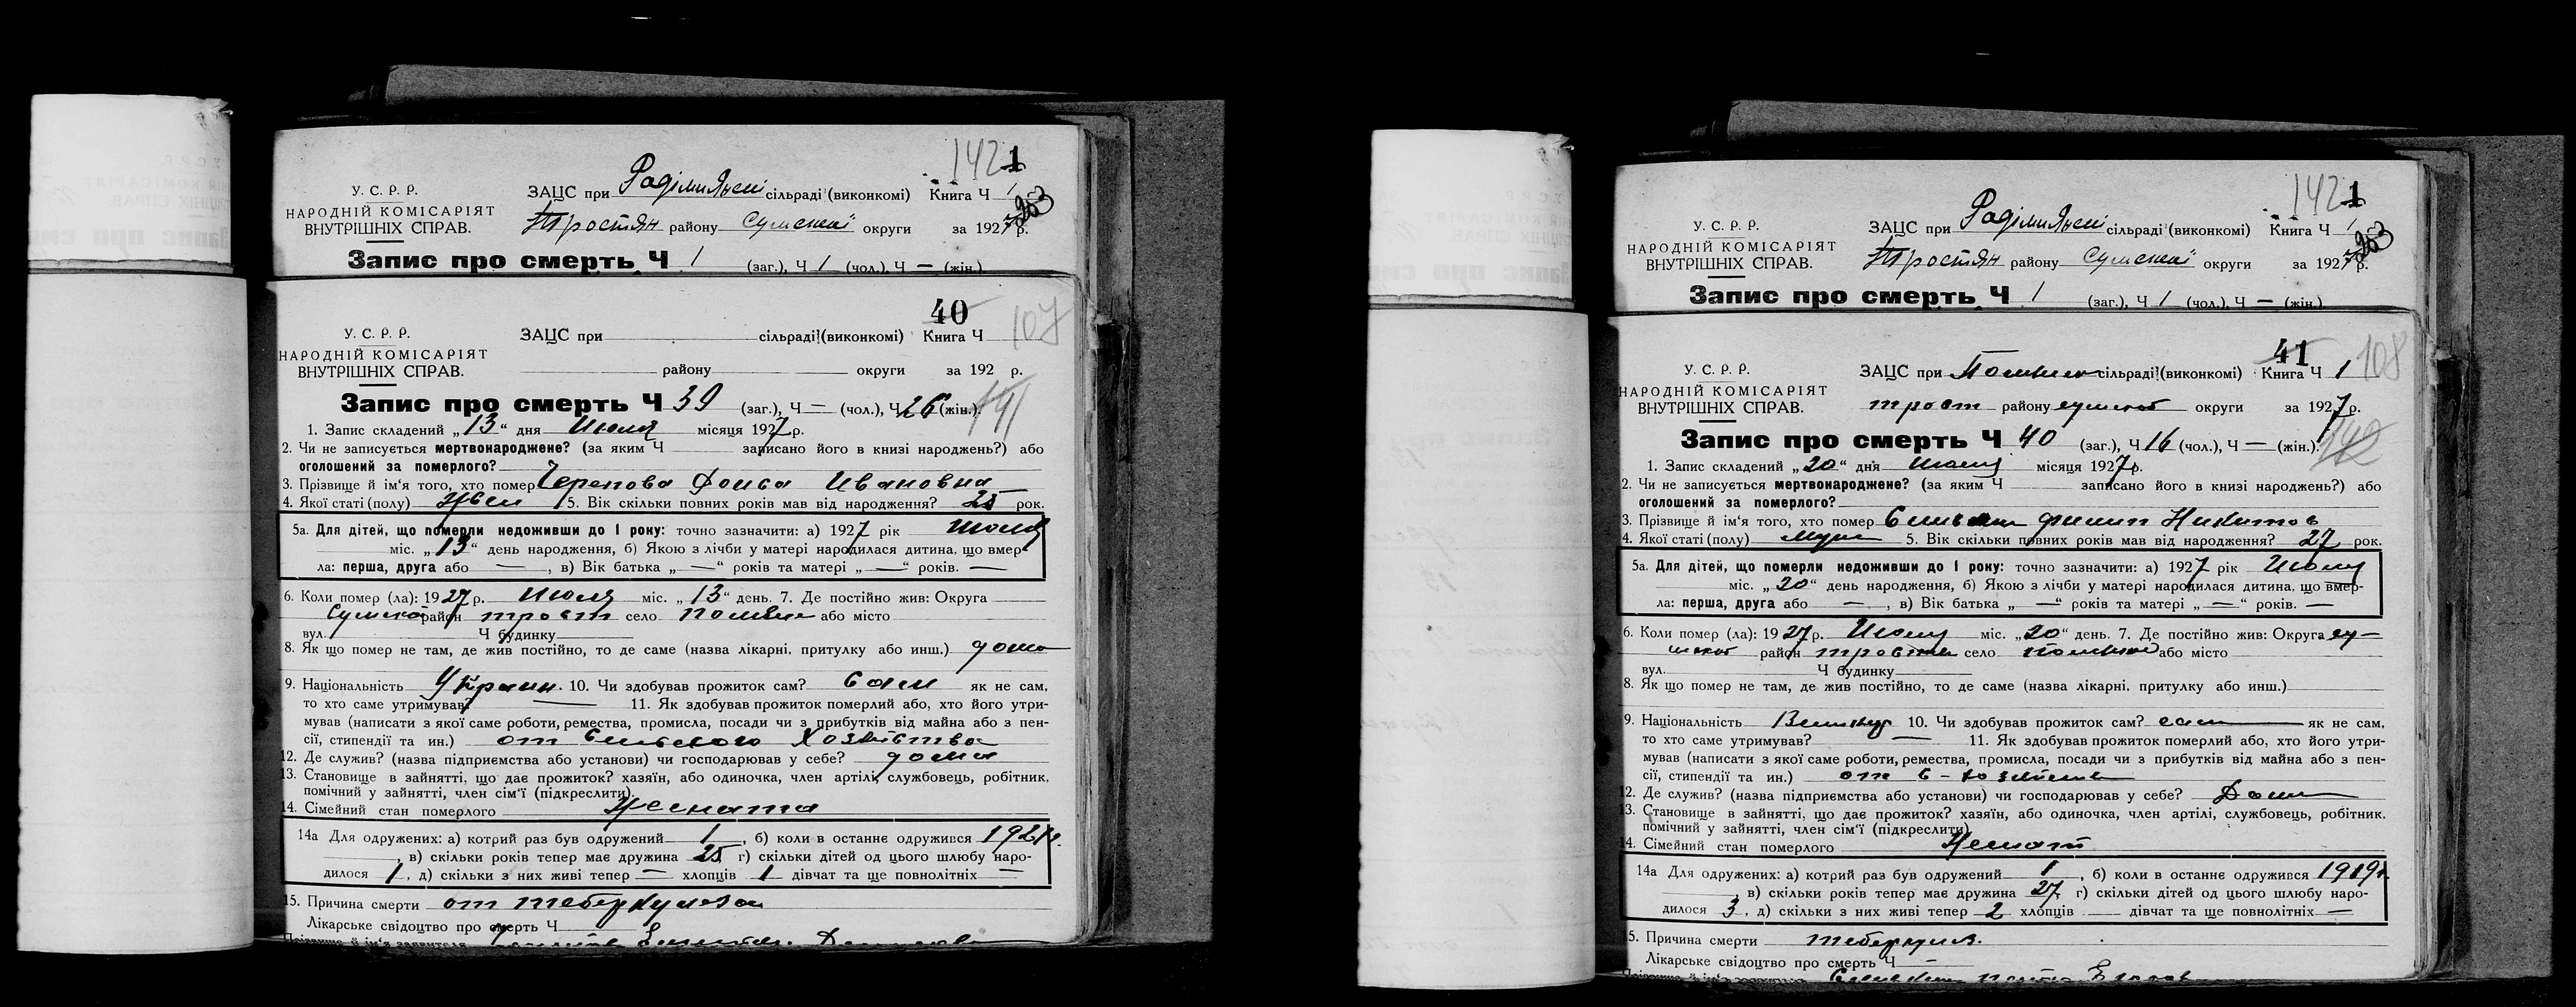 142 1
У. С. Р. Р.
НАРОДНІЙ КОМІСАРІЯТ
ВНУТРІШНІХ СПРАВ.
ЗАЦС при сільраді (виконкомі) Книга Ч 1
203
Тростян району Сумської округи за 1927 р.
Запис про смерть Ч 1 (заг.), Ч 1 (чол.), Ч — (жін.)
40 107
У. С. Р. Р.
НАРОДНІЙ КОМІСАРІЯТ
ВНУТРІШНІХ СПРАВ.
ЗАЦС при сільраді (виконкомі) Книга Ч
району округи за 192 р.
141
Запис про смерть Ч 39 (заг.), Ч — (чол.), Ч 26 (жін.).
1. Запис складений „13“ дня Июля місяця 1927 р.
2. Чи не записується мертвонароджене? (за яким Ч записано його в книзі народжень?) або
оголошений за померлого?
3. Прізвище й ім'я того, хто помер Ивановна
4. Якої статі (полу) 5. Вік скільки повних років мав від народження? 25 рок.
5а. Для дітей, що померли недоживши до 1 року: точно зазначити: а) 1927 рік Июля
міс. „13“ день народження, б) Якою з лічби у матері народилася дитина, що вмер-
ла: перша, друга або —, в) Вік батька „—“ років та матері „—“ років. —
6. Коли помер (ла): 1927 р. Июля міс. „13“ день. 7. Де постійно жив: Округа
Сумской район трост село або місто
вул. Ч будинку
8. Як що помер не там, де жив постійно, то де саме (назва лікарні, притулку або инш.) дома
9. Національність Украин. 10. Чи здобував прожиток сам? сам як не сам,
то хто саме утримував? — 11. Як здобував прожиток померлий або, хто його утри-
мував (написати з якої саме роботи, ремества, промисла, посади чи з прибутків від майна або з пен-
сії, стипендії та ин.) от сельского хозяйства
12. Де служив? (назва підприємства або установи) чи господарював у себе? дома
13. Становище в зайнятті, що дає прожиток? хазяїн, або одиночка, член артілі, службовець, робітник,
помічний у зайнятті, член сім'ї (підкреслити).
14. Сімейний стан померлого
14а Для одружених: а) котрий раз був одружений 1, б) коли в останнє одружився
, в) скільки років тепер має дружина 25 г) скільки дітей од цього шлюбу наро-
дилося 1, д) скільки з них живі тепер — хлопців 1 дівчат та ще повнолітніх —
15. Причина смерти от теберкулеза
Лікарське свідоцтво про смерть Ч
Прізвище й ім'я заявителя
142 1
У. С. Р. Р.
НАРОДНІЙ КОМІСАРІЯТ
ВНУТРІШНІХ СПРАВ.
ЗАЦС при сільраді (виконкомі) Книга Ч 1
203
Тростян району Сумської округи за 1927 р.
Запис про смерть Ч 1 (заг.), Ч 1 (чол.), Ч — (жін.)
41 108
У. С. Р. Р.
НАРОДНІЙ КОМІСАРІЯТ
ВНУТРІШНІХ СПРАВ.
ЗАЦС при сільраді (виконкомі) Книга Ч 1
трост району сумской округи за 1927 р.
142
Запис про смерть Ч 40 (заг.), Ч 16 (чол.), Ч — (жін.).
1. Запис складений „20“ дня Июля місяця 1927 р.
2. Чи не записується мертвонароджене? (за яким Ч записано його в книзі народжень?) або
оголошений за померлого?
3. Прізвище й ім'я того, хто помер филип Никитов
4. Якої статі (полу) Муж 5. Вік скільки повних років мав від народження? 27 рок.
5а. Для дітей, що померли недоживши до 1 року: точно зазначити: а) 1927 рік Июля
міс. „20“ день народження, б) Якою з лічби у матері народилася дитина, що вмер-
ла: перша, друга або —, в) Вік батька „—“ років та матері „—“ років. —
6. Коли помер (ла): 1927 р. Июля міс. „20“ день. 7. Де постійно жив: Округа су-
мской район село або місто
вул. Ч будинку
8. Як що помер не там, де жив постійно, то де саме (назва лікарні, притулку або инш.)
9. Національність 10. Чи здобував прожиток сам? сам як не сам,
то хто саме утримував? — 11. Як здобував прожиток померлий або, хто його утри-
мував (написати з якої саме роботи, ремества, промисла, посади чи з прибутків від майна або з пен-
сії, стипендії та ин.) от с-хозяйства
12. Де служив? (назва підприємства або установи) чи господарював у себе? Дома
13. Становище в зайнятті, що дає прожиток? хазяїн, або одиночка, член артілі, службовець, робітник,
помічний у зайнятті, член сім'ї (підкреслити).
14. Сімейний стан померлого
14а Для одружених: а) котрий раз був одружений 1, б) коли в останнє одружився 1919 г.
, в) скільки років тепер має дружина 27 г) скільки дітей од цього шлюбу наро-
дилося 3, д) скільки з них живі тепер 2 хлопців — дівчат та ще повнолітніх —
15. Причина смерти
Лікарське свідоцтво про смерть Ч —